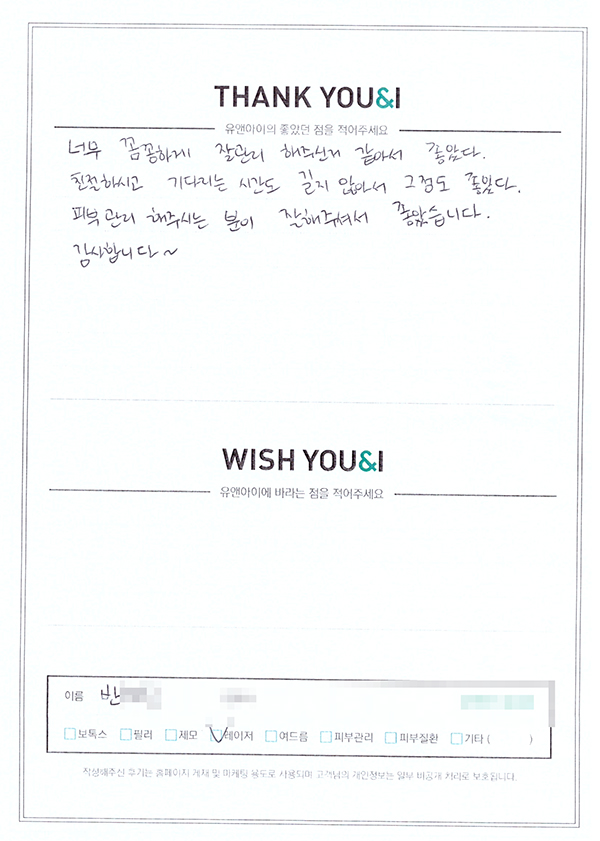 THANK YOU&I
유앤아이의 좋았던 점을 적어주세요
너무 꼼꼼하게 잘관리 해주신거 같아서 좋았다.
친절하시고 기다리는 시간도 길지 않아서 그점도 좋았다.
피부관리 해주시는 분이 잘해주셔서 좋았습니다.
감사합니다~
WISH YOU&I
유앤아이에 바라는 점을 적어주세요
이름 반
보톡스 필러 제모 레이저 여드름 피부관리 피부질환 기타 ( )
작성해주신 후기는 홈페이지 게재 및 마케팅 용도로 사용되며 고객님의 개인정보는 일부 비공개 처리로 보호됩니다.